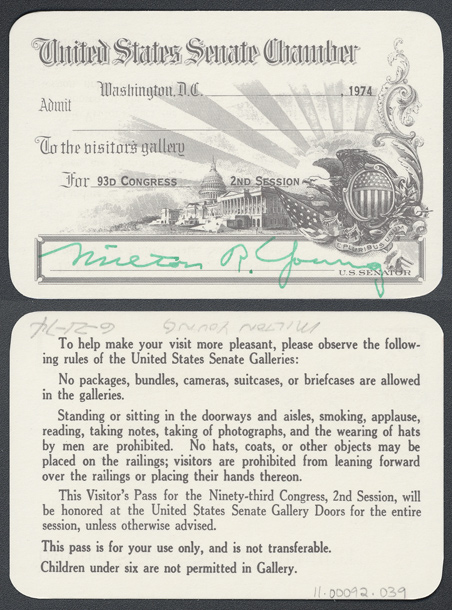 United States Senate Chamber
Washington, D.C. , 1974
Admit
To the visitor's gallery
For 93D CONGRESS 2ND SESSION
PLURIBUS
Milton R. Young
U.S. SENATOR
MILTON YOUNG 6-21-74
To help make your visit more pleasant, please observe the follow-
ing rules of the United States Senate Galleries:
No packages, bundles, cameras, suitcases, or briefcases are allowed
in the galleries.
Standing or sitting in the doorways and aisles, smoking, applause,
reading, taking notes, taking of photographs, and the wearing of hats
by men are prohibited. No hats, coats, or other objects may be
placed on the railings; visitors are prohibited from leaning forward
over the railings or placing their hands thereon.
This Visitor's Pass for the Ninety-third Congress, 2nd Session, will
be honored at the United States Senate Gallery Doors for the entire
session, unless otherwise advised.
This pass is for your use only, and is not transferable.
Children under six are not permitted in Gallery.
11.00092.039